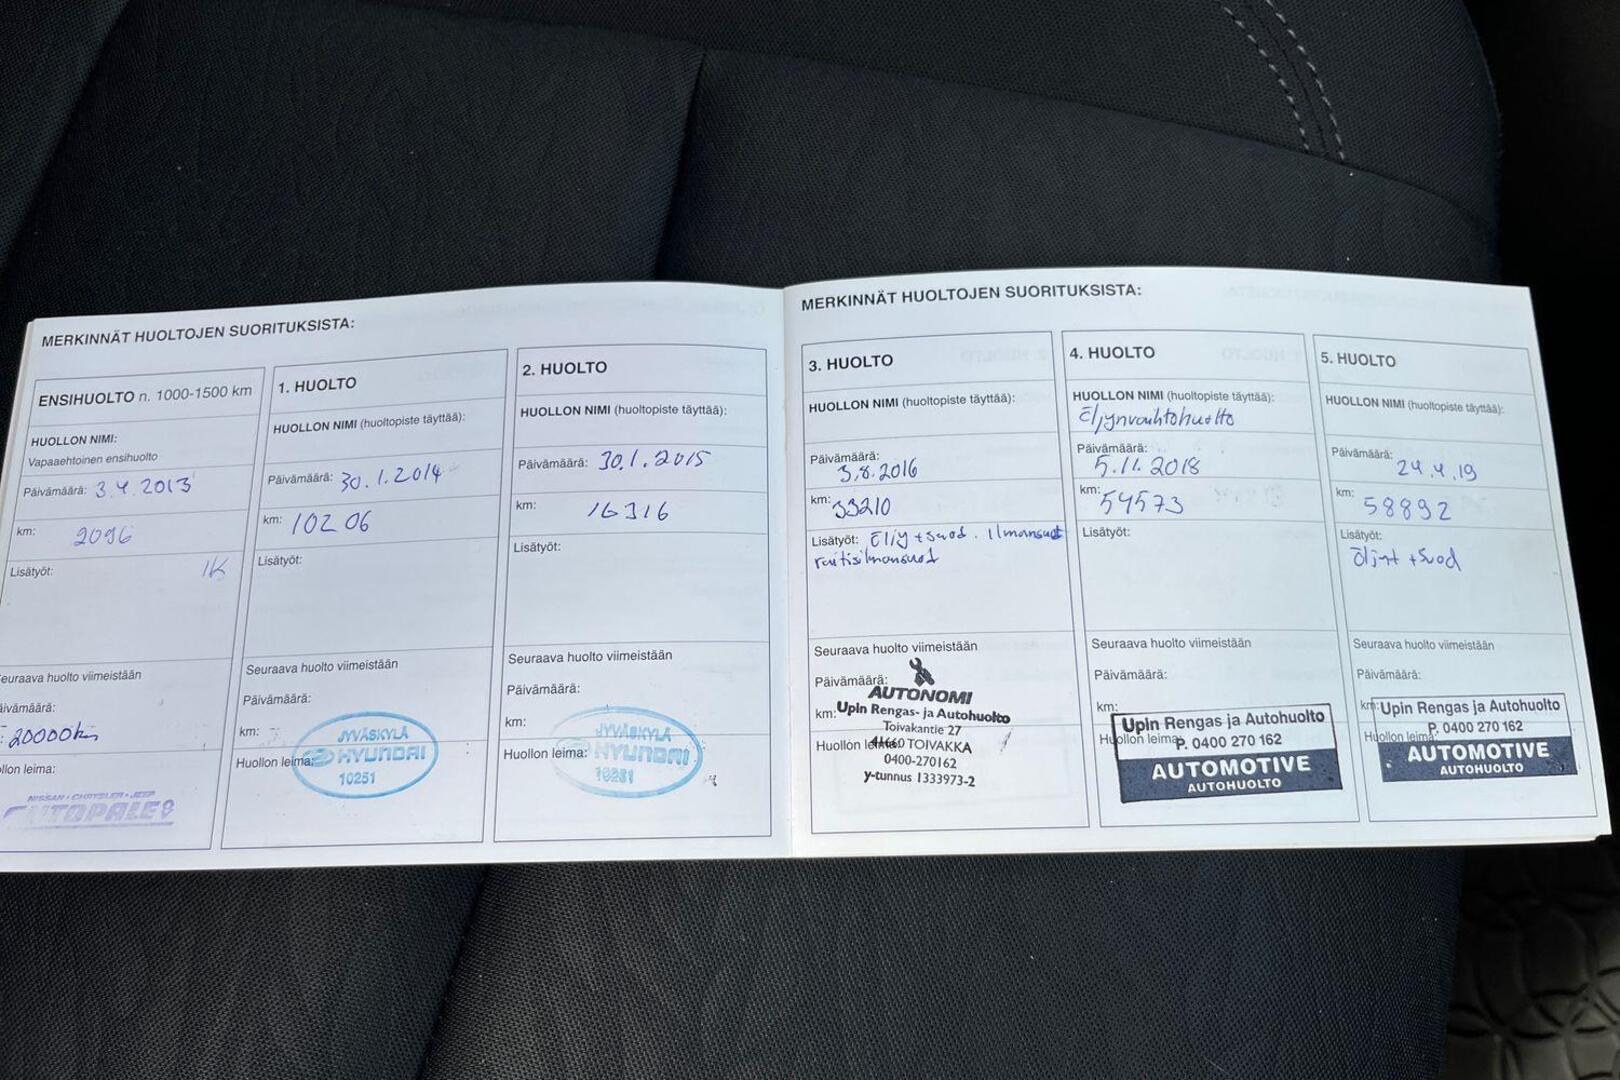 MERKINNÄT HUOLTOJEN SUORITUKSISTA:
ENSIHUOLTO n. 1000-1500 km
HUOLLON NIMI:
Vapaaehtoinen ensihuolto
Päivämäärä: 3.4.2013
km: 2096
Lisätyöt: 1K
euraava huolto viimeistään
äivämäärä:
: 20000km
ollon leima:
NISSAN • CHRYSLER • JEEP
1. HUOLTO
HUOLLON NIMI (huoltopiste täyttää):
Päivämäärä: 30.1.2014
km: 10206
Lisätyöt:
Seuraava huolto viimeistään
Päivämäärä:
km:
Huollon leima:
JYVÄSKYLÄ
HYUNDAI
10251
2. HUOLTO
HUOLLON NIMI (huoltopiste täyttää):
Päivämäärä: 30.1.2015
km: 16316
Lisätyöt:
Seuraava huolto viimeistään
Päivämäärä:
km:
Huollon leima:
JYVÄSKYLÄ
HYUNDAI
10251
MERKINNÄT HUOLTOJEN SUORITUKSISTA:
3. HUOLTO
HUOLLON NIMI (huoltopiste täyttää):
Päivämäärä:
3.8.2016
km: 33210
Lisätyöt: Öljy + suod. Ilmansuod
raitisilmansuod
Seuraava huolto viimeistään
Päivämäärä:
AUTONOMI
km: Upin Rengas- ja Autohuolto
Toivakantie 27
Huollon leima: 41660 TOIVAKKA
0400-270162
y-tunnus 1333973-2
4. HUOLTO
HUOLLON NIMI (huoltopiste täyttää):
Öljynvaihtohuolto
Päivämäärä:
5.11.2018
km: 54573
Lisätyöt:
Seuraava huolto viimeistään
Päivämäärä:
km:
Upin Rengas ja Autohuolto
Huollon leima: P. 0400 270 162
AUTOMOTIVE
AUTOHUOLTO
5. HUOLTO
HUOLLON NIMI (huoltopiste täyttää):
Päivämäärä: 24.4.19
km: 58892
Lisätyöt:
Öljyt + suod
Seuraava huolto viimeistään
Päivämäärä:
km: Upin Rengas ja Autohuolto
P. 0400 270 162
Huollon leima:
AUTOMOTIVE
AUTOHUOLTO